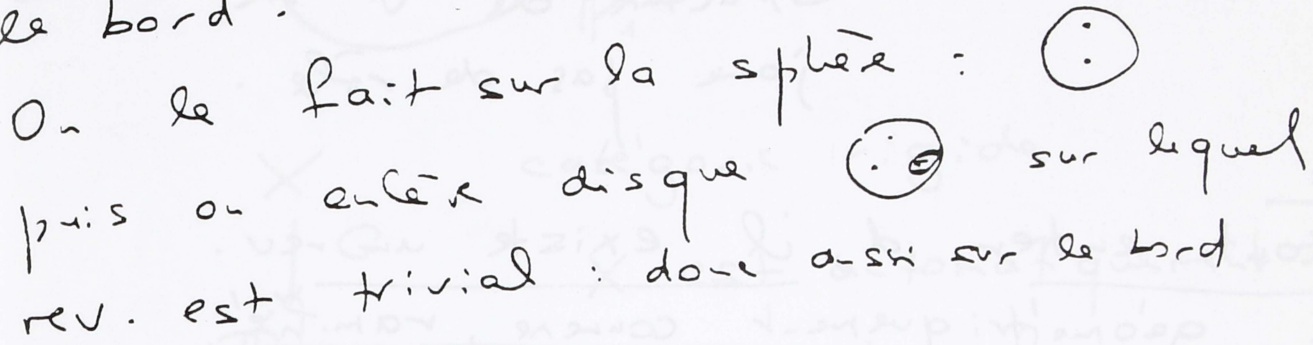 le bord.
On le fait sur la sphère :
puis on enlève disque sur lequel
rev. est trivial : donc aussi sur le bord